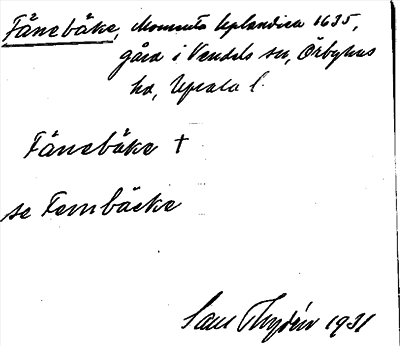 Fänebäke, Momenta Uplandica 1635,
gård i Vendels sn, Örbyhus
hd, Upsala l.
Fänebäke †
se Fembäcke
1931